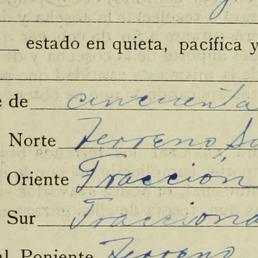 estado en quieta, pacífica y
de de cincuenta
Norte Terreno
Oriente Fracción
Sur Fracciona
Poniente Terreno